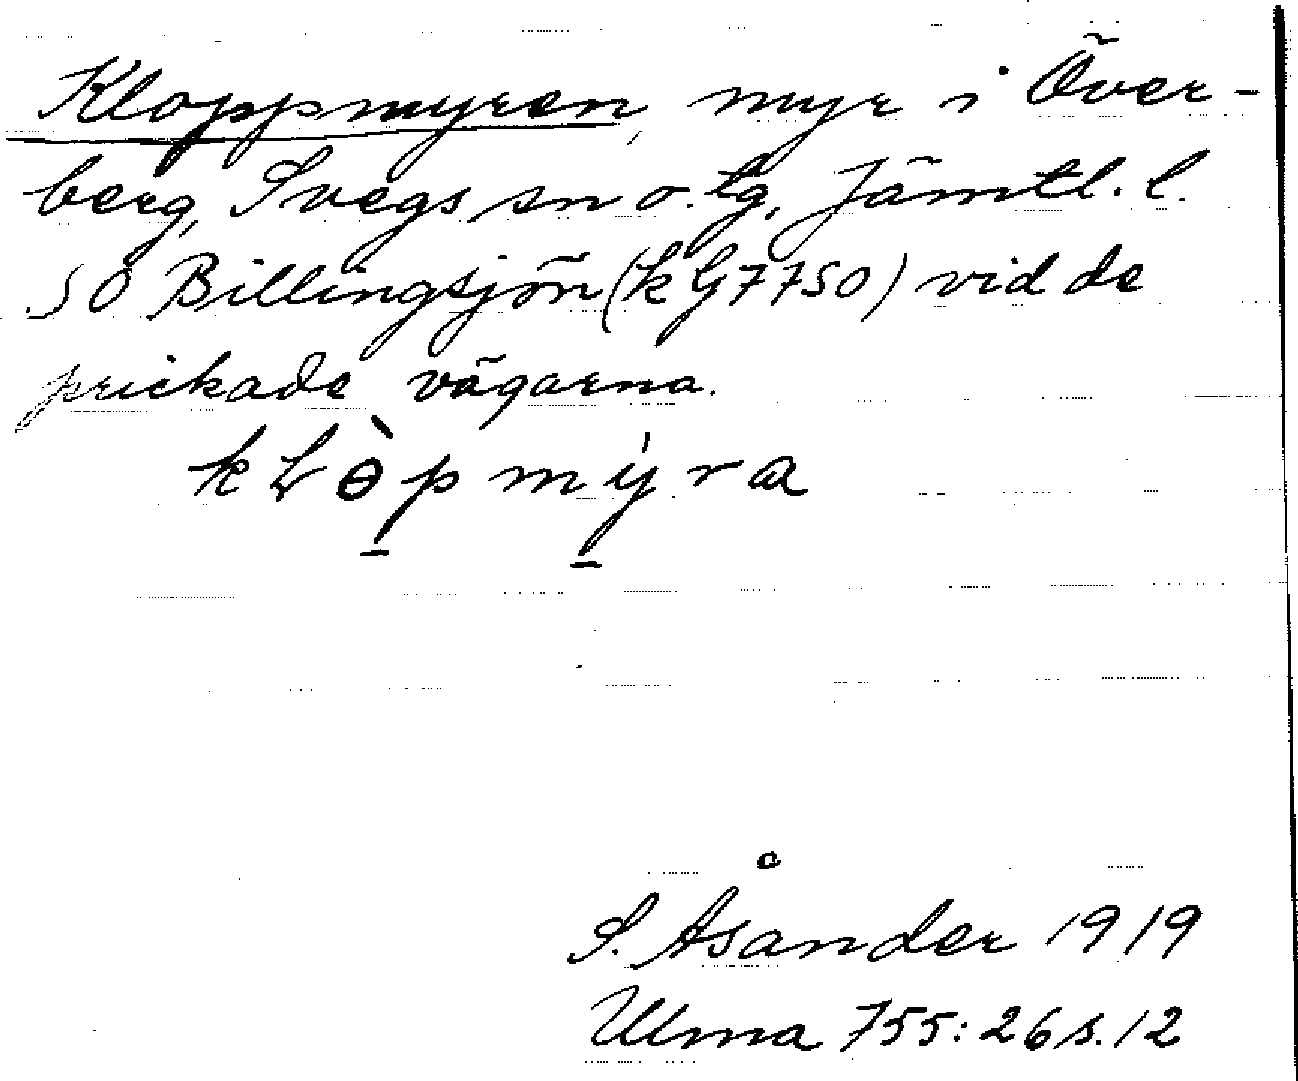 Kloppmyren, myr i Över-
berg, Svegs sn o. tg, Jämtl. l.
SO Billingsjön (k G7750) vid de
prickade vägarna.
kLɵ̀pmy̍ra
S. Åsander 1919
Ulma 755:26 s. 12